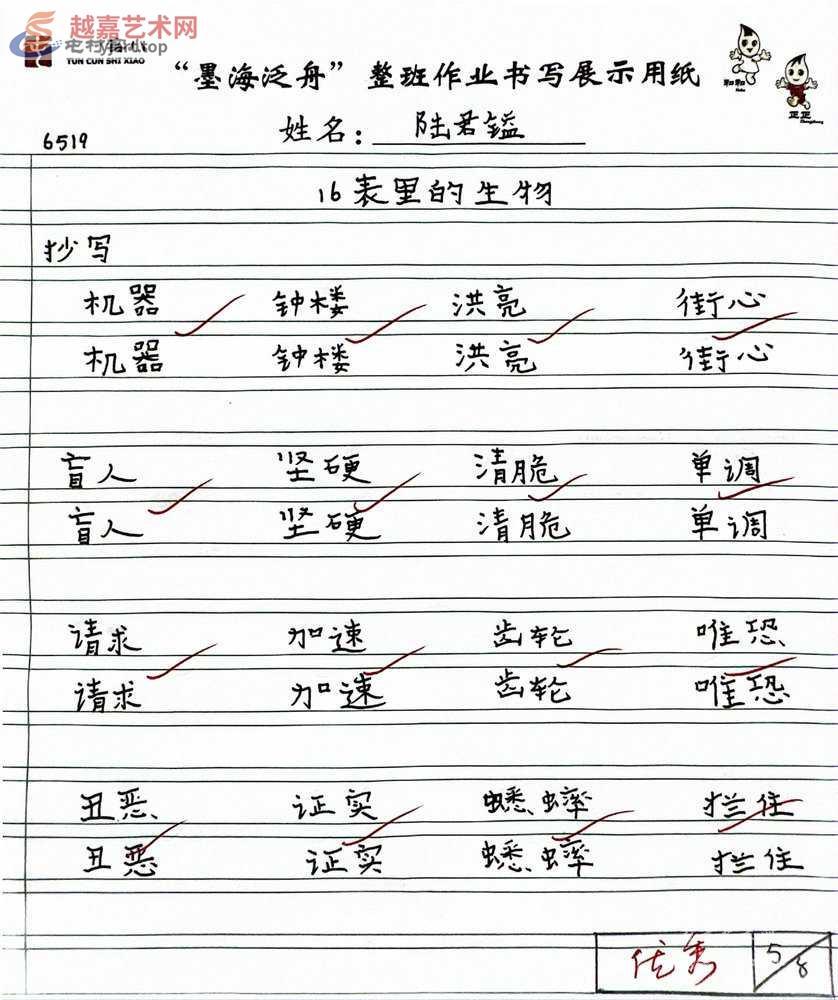 越嘉艺术网
yjart.top
TUN CUN SHI XIAO
“墨海泛舟”整班作业书写展示用纸
和和
正正
6519 姓名：陆君镒
16表里的生物
抄写
机器 钟楼 洪亮 街心
机器 钟楼 洪亮 街心
盲人 坚硬 清脆 单调
盲人 坚硬 清脆 单调
请求 加速 齿轮 唯恐
请求 加速 齿轮 唯恐
丑恶 证实 蟋蟀 拦住
丑恶 证实 蟋蟀 拦住
优秀 5/8